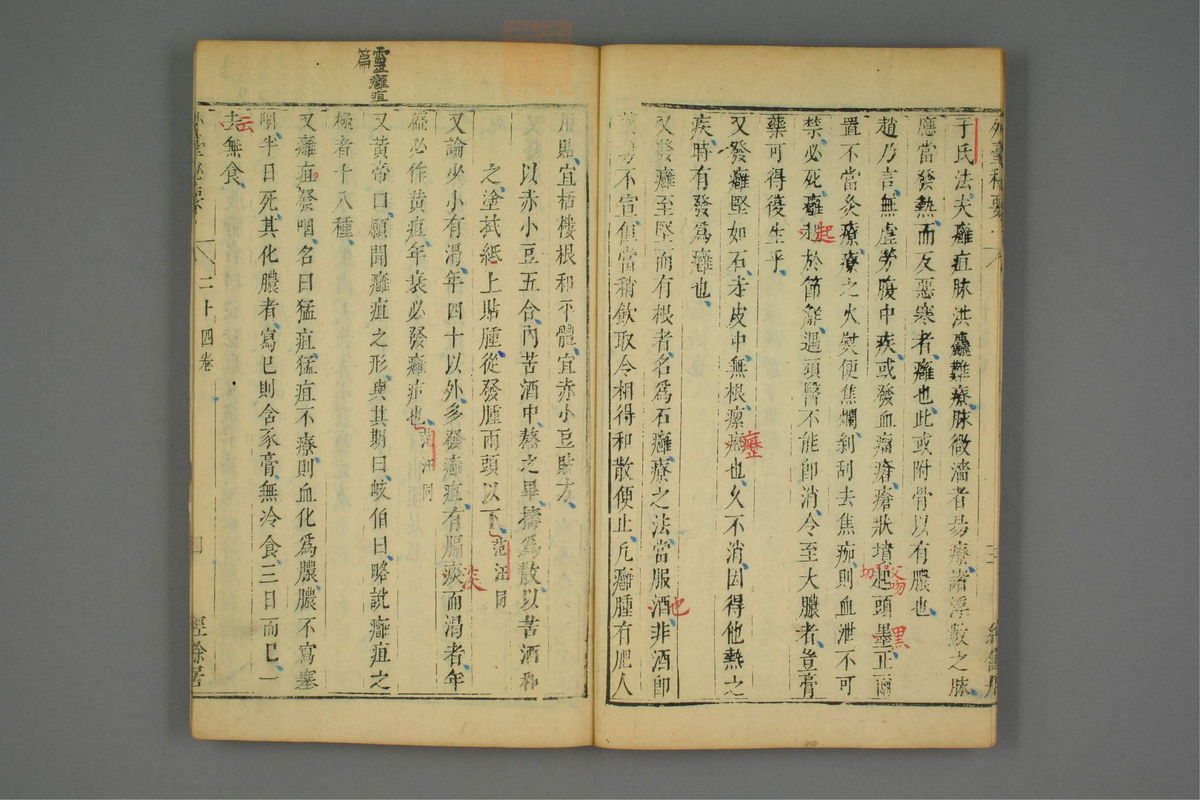 外臺秘要
于氏法夫癰疽脉洪麤難療脉微濇者易療諸浮數之脉
應當發熱而反惡寒者癰也此或附骨以有膿也
趙乃言無虛勞腹中疾或發血瘤瘡瘡狀墳起頭墨正爾
置不當灸療療之火熨便焦爛剝刮去焦痂則血泄不可
禁必死癰起於節解遇頭醫不能卽消令至大膿者豈膏
藥可得復生乎
又發癰堅如石走皮中無根瘰癧也久不消因得他熱之
疾時有發爲癰也
又發癰至堅而有根者名爲石癰療之法當服酒非酒卽
藥勢不宣但當稍飲取令相得和散便止凡癰腫有肥人
起
癧
吻
黑
也
用貼宜栝樓根和平體宜赤小豆貼方
以赤小豆五合內苦酒中熬之畢擣爲散以苦酒和
之塗拭紙上貼腫從發腫兩頭以下范汪同
又論少小有渴年四十以外多發癰疽有膈痰而渴者年
盛必作黃疸年衰必發癰疽也范汪同
又黃帝曰願聞癰疽之形與其期日岐伯曰略說癰疽之
極者十八種
又癰疽發咽名曰猛疽猛疽不療則血化爲膿膿不寫塞
咽半日死其化膿者寫已則含豕膏無冷食三日而已一
云無食
靈癰疽
篇
外臺秘要
二十四卷
經餘居